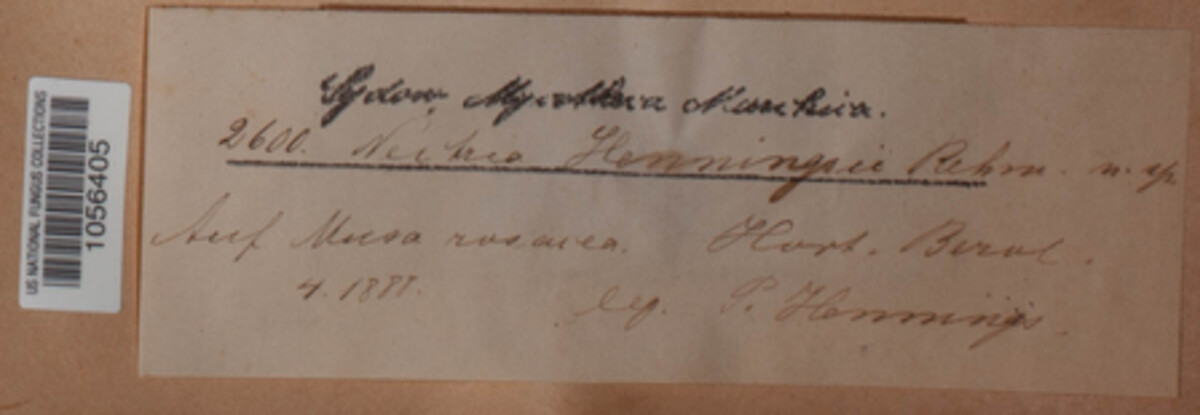 US NATIONAL FUNGUS COLLECTIONS
1056405
Sydow Mycotheca Marchica.
2600. Nectria Henningsii Rehm. n. sp.
Auf Musa rosacea. Hort. Berol.
4. 1888.
leg. P. Hennings.